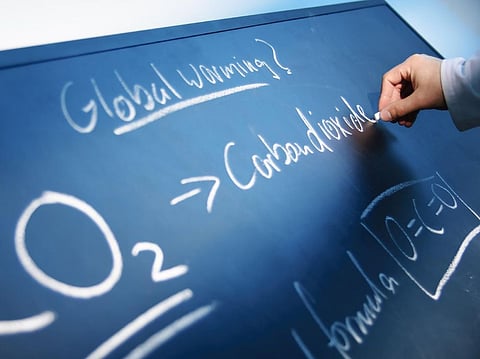 Global warming?
O2 → Carbondioxide
formula [O=C=O]